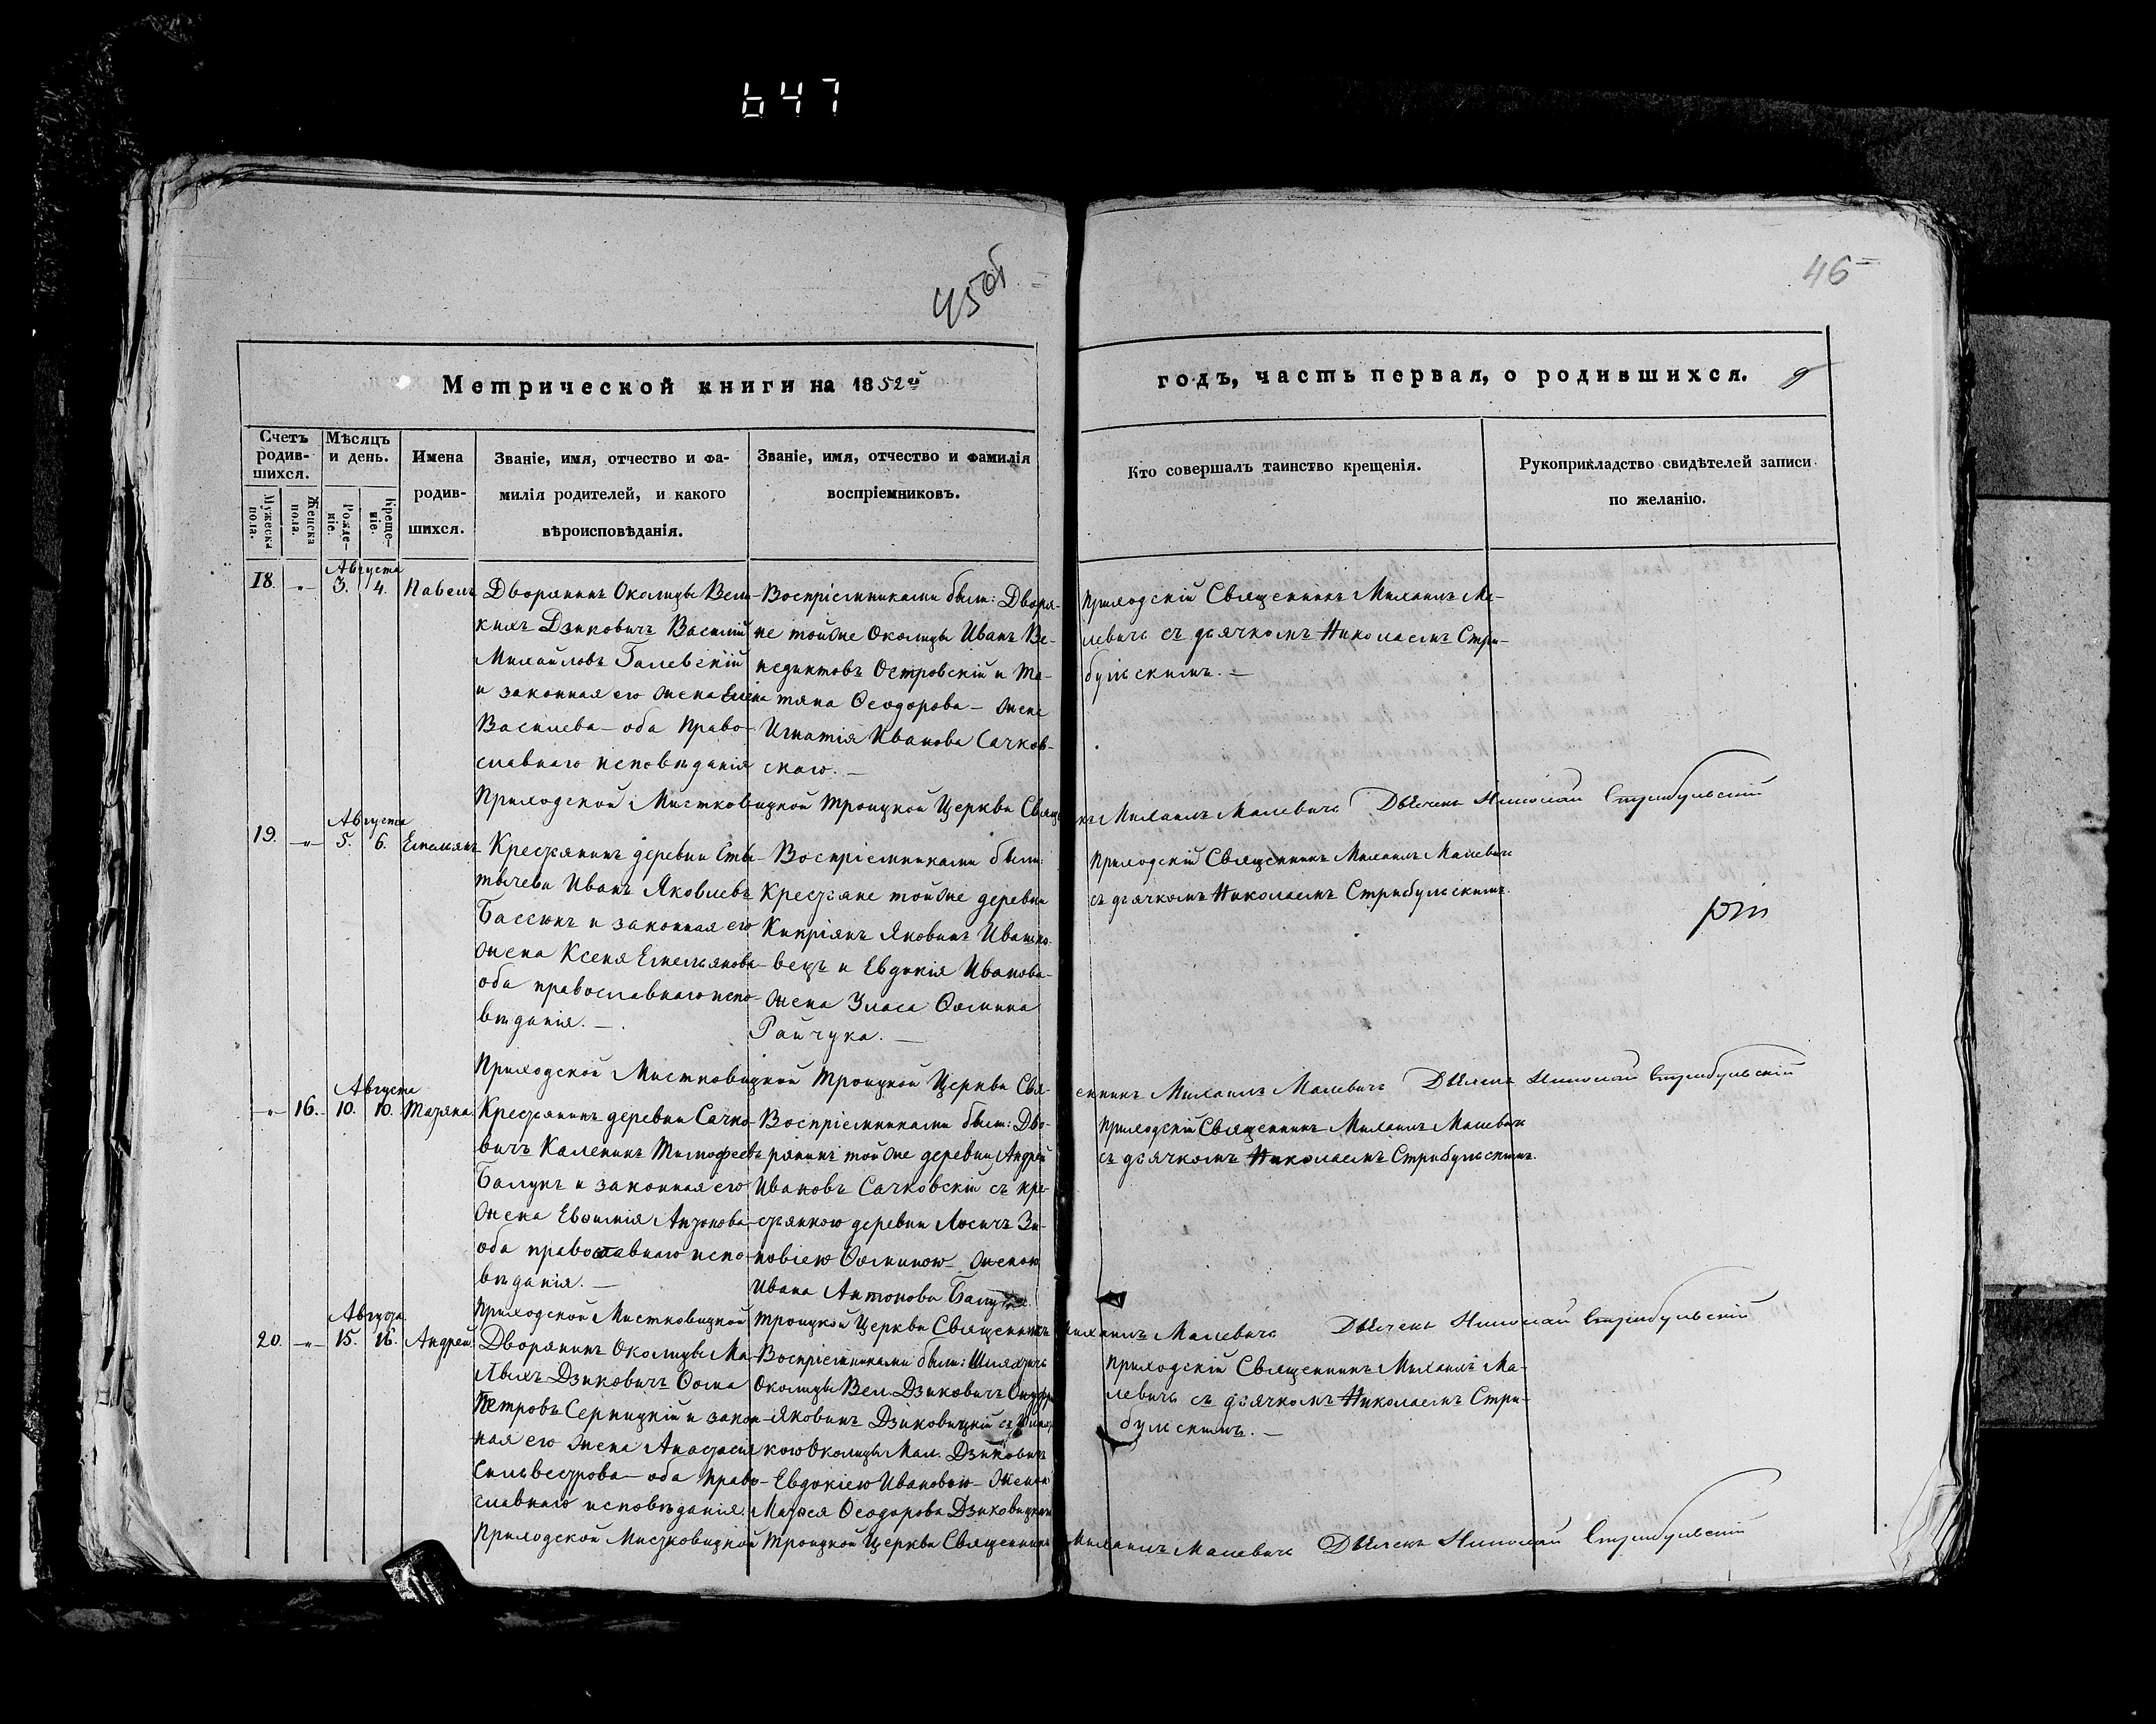 647
45об
46
Метрической книги на 1852й
годъ, часть первая, о родившихся.
9
Счетъ родив-шихся.
Мужеска пола.
Женска пола.
Мѣсяцъ и день.
Рожде-ніе.
Креще-ніе.
Имена
родив-
шихся.
Званіе, имя, отчество и фа-
милія родителей, и какого
вѣроисповѣданія.
Званіе, имя, отчество и фамилія
воспріемниковъ.
Кто совершалъ таинство крещенія.
Рукоприкладство свидѣтелей записи
по желанію.
Августа
18. -"- 3. 4. Павелъ
Дворянинъ Околицы Вели-
кихъ Дзиковичъ Василій
Михайловъ Галевскій
и законная его жена Елена
Васильева - оба Право-
славнаго исповѣданія
Воспріемниками были: Дворя-
не тойже Околицы Иванъ Ве-
недиктовъ Островскій и Та-
тяна Ѳеодорова - жена
Игнатія Иванова Сачков-
скаго. -
Приходскій Священникъ Михаилъ Ма-
левичъ съ дьячкомъ Николаемъ Стри-
бульскимъ. -
Приходской Мистковицкой Троицкой Церкви Священникъ Михаилъ Малевичъ Дьячекъ Николай Стрибульскій
Августа
19. -"- 5. 6. Емельянъ
Крестянинъ деревни Сты-
тычева Иванъ Яковлевъ
Басскнъ и законная его
жена Ксеня Емельянова
оба православнаго испо-
вѣданія. -
Воспріемниками были:
Крестяне тойже деревни
Кипріянъ Яковинъ Ивашко-
вецъ и Евдокія Иванова-
жена Власа Ѳомина
Райчука. -
Приходскій Священникъ Михаилъ Малевичъ
съ дьячкомъ Николаемъ Стрибульскимъ.
Приходской Мистковицкой Троицкой Церкви Священникъ Михаилъ Малевичъ Дьячекъ Николай Стрибульскій
Августа
-"- 16. 10. 10. Татяна
Крестянинъ деревни Сачко-
вичъ Каленикъ Тимофеевъ
Балунъ и законная его
жена Евѳимія Антонова
оба православнаго испо-
вѣданія. -
Воспріемниками были: Дво-
рянинъ тойже деревни Андрей
Ивановъ Сачковскій съ кре-
стянкою деревни Лосичъ Зи-
новіею Ѳоминою - женою
Ивана Антонова Балуна.
Приходскій Священникъ Михаилъ Малевичъ
съ дьячкомъ Николаемъ Стрибульскимъ.
Приходской Мистковицкой Троицкой Церкви Священникъ Михаилъ Малевичъ Дьячекъ Николай Стрибульскій
Августа
20. -"- 15. 16. Андрей
Дворянинъ Околицы Ма-
лыхъ Дзиковичъ Ѳома
Петровъ Серницкій и закон-
ная его жена Анастасія
Сильвестрова - оба право-
славнаго исповѣданія.
Воспріемниками были: Шляхтичъ
Околицы Вел. Дзиковичъ Онуфрій
Яковинъ Дзиковицкій съ Шляхт
кою Околицы Мал. Дзиковичъ
Евдокіею Ивановою - женою
Матфея Ѳеодорова Дзиковицкаго
Приходскій Священникъ Михаилъ Ма-
левичъ съ дьячкомъ Николаемъ Стри-
бульскимъ. -
Приходской Мистковицкой Троицкой Церкви Священникъ Михаилъ Малевичъ Дьячекъ Николай Стрибульскій